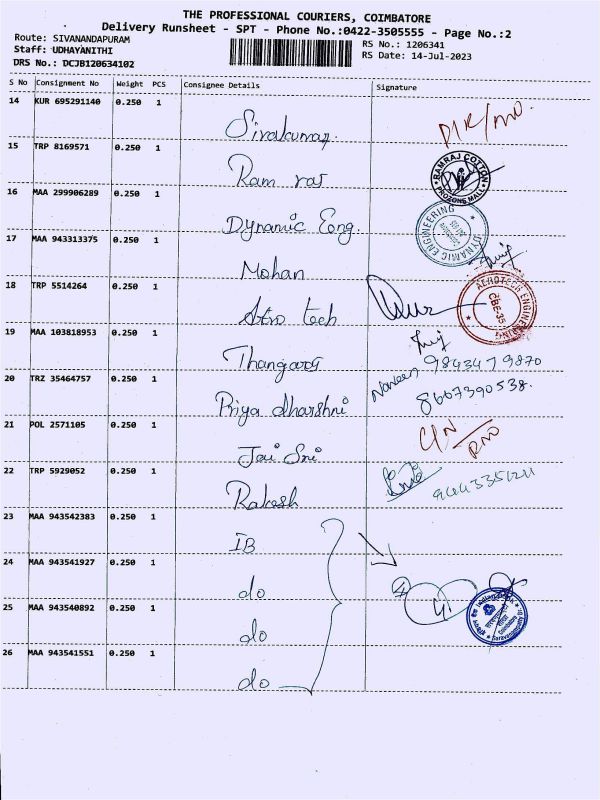 THE PROFESSIONAL COURIERS, COIMBATORE
Delivery Runsheet - SPT - Phone No.:0422-3505555 - Page No.:2
Route: SIVANANDAPURAM
RS No.: 1206341
Staff: UDHAYANITHI
RS Date: 14-Jul-2023
DRS No.: DCJB120634102
S No Consignment No Weight PCS Consignee Details Signature
14 KUR 695291140 0.250 1
Sivakumar.
15 TRP 8169571 0.250 1
RAMRAJ COTTON
PROZONE MALL
Ram raj
16 MAA 299906289 0.250 1
Dynamic Eng.
DYNAMIC ENGINEERING
17 MAA 943313375 0.250 1
Mohan
18 TRP 5514264 0.250 1
Astro tech
AEROTECH ENGINEERING
CBE-35
19 MAA 103818953 0.250 1
Thangaraj
Naveen 9843479870
20 TRZ 35464757 0.250 1
8667390538.
Priya dharshni
21 POL 2571105 0.250 1
Jai Sri
22 TRP 5929052 0.250 1
Rakesh
23 MAA 943542383 0.250 1
IB
24 MAA 943541927 0.250 1
do
4
25 MAA 943540892 0.250 1
do
26 MAA 943541551 0.250 1
do